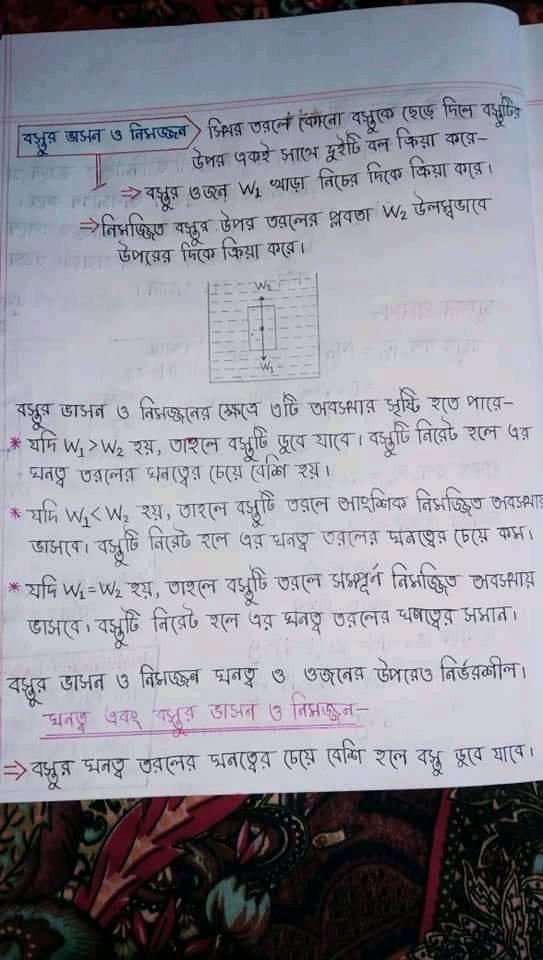 বস্তুর ভাসন ও নিমজ্জন
স্থির তরলে কোনো বস্তুকে ছেড়ে দিলে বস্তুটির
উপর একই সাথে দুইটি বল ক্রিয়া করে-
⇒ বস্তুর ওজন W₁ খাড়া নিচের দিকে ক্রিয়া করে।
⇒ নিমজ্জিত বস্তুর উপর তরলের প্লবতা W₂ উলম্বভাবে
উপরের দিকে ক্রিয়া করে।
W₂
W₁
বস্তুর ভাসন ও নিমজ্জনের ক্ষেত্রে ৩টি অবস্থার সৃষ্টি হতে পারে-
* যদি W₁ > W₂ হয়, তাহলে বস্তুটি ডুবে যাবে। বস্তুটি নিরেট হলে এর
ঘনত্ব তরলের ঘনত্বের চেয়ে বেশি হয়।
* যদি W₁ < W₂ হয়, তাহলে বস্তুটি তরলে আংশিক নিমজ্জিত অবস্থায়
ভাসবে। বস্তুটি নিরেট হলে এর ঘনত্ব তরলের ঘনত্বের চেয়ে কম।
* যদি W₁ = W₂ হয়, তাহলে বস্তুটি তরলে সম্পূর্ন নিমজ্জিত অবস্থায়
ভাসবে। বস্তুটি নিরেট হলে এর ঘনত্ব তরলের ঘনত্বের সমান।
বস্তুর ভাসন ও নিমজ্জন ঘনত্ব ও ওজনের উপরেও নির্ভরশীল।
ঘনত্ব এবং বস্তুর ভাসন ও নিমজ্জন-
⇒ বস্তুর ঘনত্ব তরলের ঘনত্বের চেয়ে বেশি হলে বস্তু ডুবে যাবে।